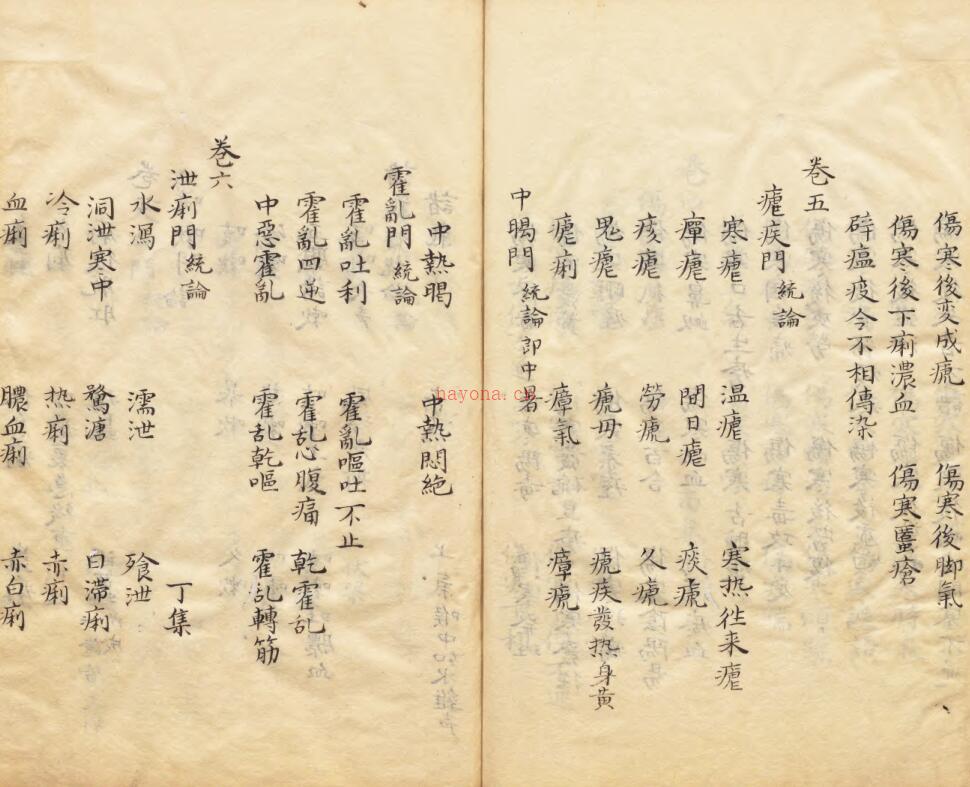 傷寒後変成瘧 傷寒後脚氣
傷寒後下痢濃血 傷寒䘌瘡
辟瘟疫令不相傳染
卷五
瘧疾門 統論
寒瘧 温瘧 寒热徃来瘧
瘴瘧 間日瘧 痰瘧
痎瘧 勞瘧 久瘧
鬼瘧 瘧母 瘧疾發热身黄
瘧痢 瘴氣 瘴瘧
中暍門 統論即中暑
中熱暍 中熱悶絶
霍亂門 統論
霍亂吐利 霍亂嘔吐不止
霍亂四逆 霍乱心腹痛 乾霍乱
中惡霍亂 霍乱乾嘔 霍乱轉筋
卷六 丁集
泄痢門 統論
水瀉 濡泄 飱泄
洞泄寒中 鶩溏 白滯痢
冷痢 热痢 赤痢
血痢 膿血痢 赤白痢
nayona.cn